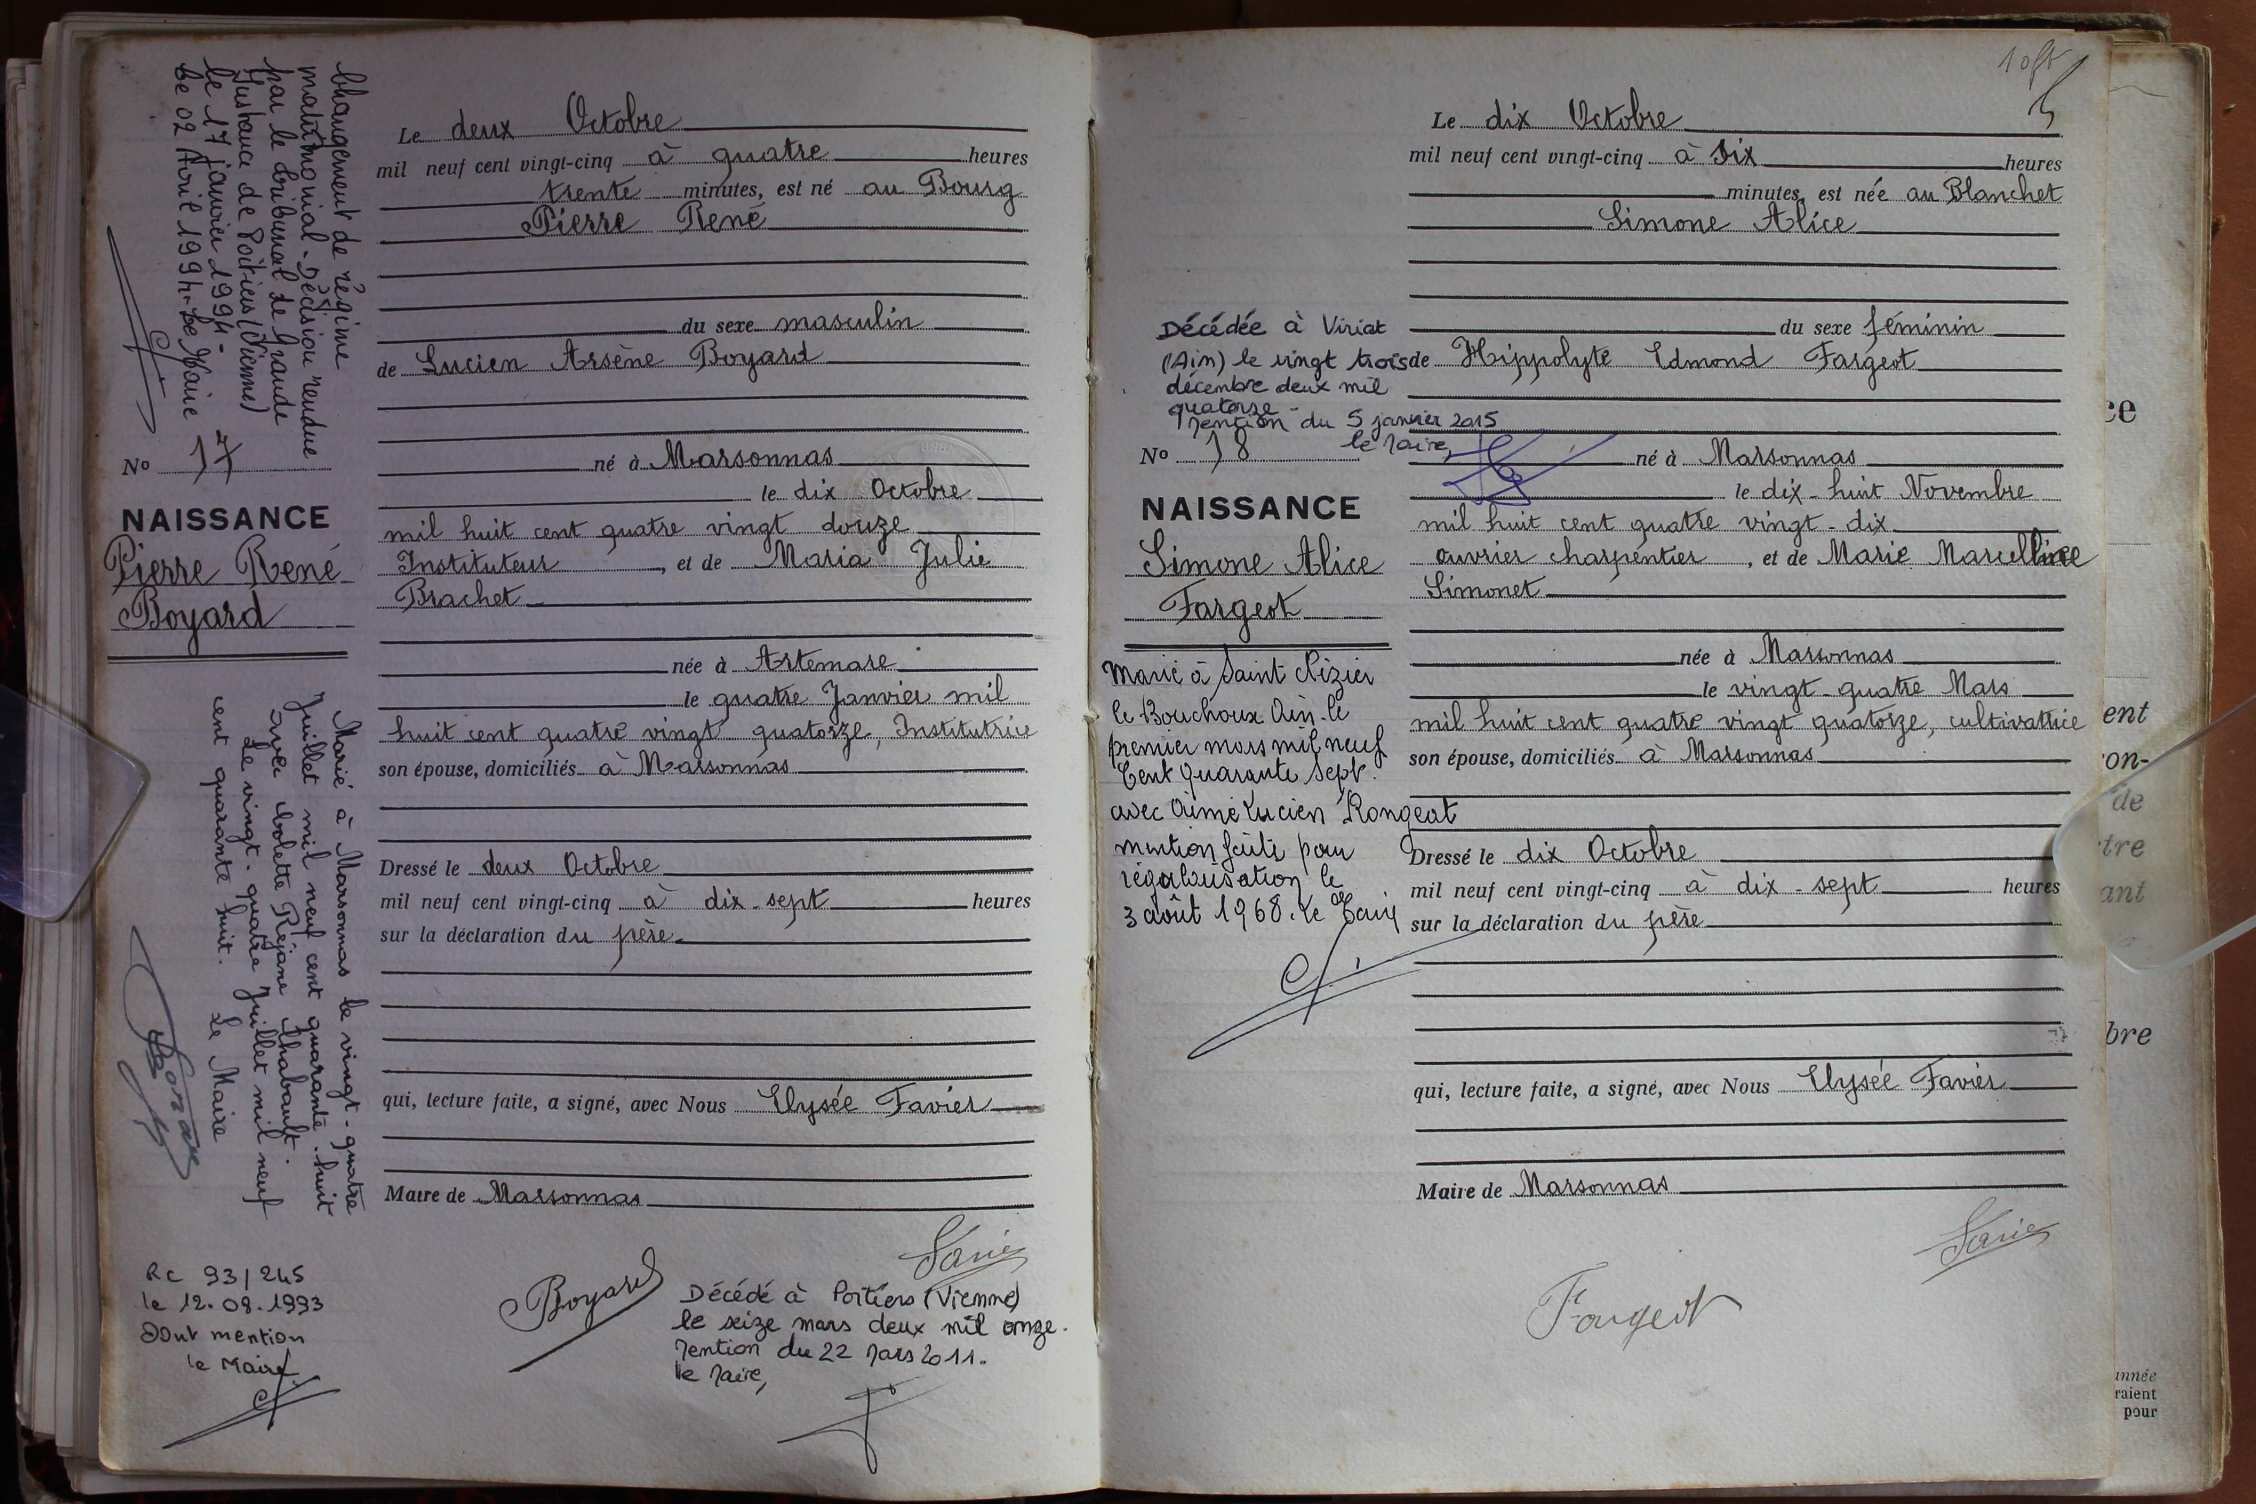 Changement de régime
matrimonial. Décision rendue
par le tribunal de Grande
Instance de Poitiers (Vienne)
le 17 janvier 1994.
Le 02 Avril 1994. Le Maire
No 17
NAISSANCE
Pierre René
Boyard
Marié à Marsonnas le vingt-quatre
Juillet mil neuf cent quarante-huit
avec Colette Réjane Chabault.
Le vingt-quatre Juillet mil neuf
cent quarante huit. Le Maire
RC 93/245
le 12.08.1993
Dont mention
le Maire
Le deux Octobre
mil neuf cent vingt-cinq à quatre heures
trente minutes, est né au Bourg
Pierre René
du sexe masculin
de Lucien Arsène Boyard
né à Marsonnas
le dix Octobre
mil huit cent quatre vingt douze
Instituteur, et de Maria Julie
Brachet
née à Artemare
le quatre Janvier mil
huit cent quatre vingt quatorze, Institutrice
son épouse, domiciliés à Marsonnas
Dressé le deux Octobre
mil neuf cent vingt-cinq à dix-sept heures
sur la déclaration du père
qui, lecture faite, a signé, avec Nous Elysée Favier
Maire de Marsonnas
Favier
Boyard
Décédé à Poitiers (Vienne)
le seize mars deux mil onze.
Mention du 22 Mars 2011.
le Maire,
Décédée à Viriat
(Ain) le vingt trois
décembre deux mil
quatorze -
Mention du 5 janvier 2015
le Maire,
No 18
NAISSANCE
Simone Alice
Fargeot
Marié à Saint Nizier
le Bouchoux Ain. le
premier mars mil neuf
Cent quarante sept.
avec Aimé Lucien Rongeat
mention faite pour
régularisation le
3 août 1968. Le
Le dix Octobre
mil neuf cent vingt-cinq à Six heures
minutes, est née au Blanchet
Simone Alice
du sexe féminin
de Hippolyte Edmond Fargeot
né à Marsonnas
le dix-huit Novembre
mil huit cent quatre vingt-dix
ouvrier charpentier, et de Marie Marcelline
Simonet
née à Marsonnas
le vingt-quatre Mars
mil huit cent quatre vingt quatorze, cultivatrice
son épouse, domiciliés à Marsonnas
Dressé le dix Octobre
mil neuf cent vingt-cinq à dix-sept heures
sur la déclaration du père
qui, lecture faite, a signé, avec Nous Elysée Favier
Maire de Marsonnas
Favier
Fargeot
ce
ent
on-
de
tre
ant
bre
année
raient
pour